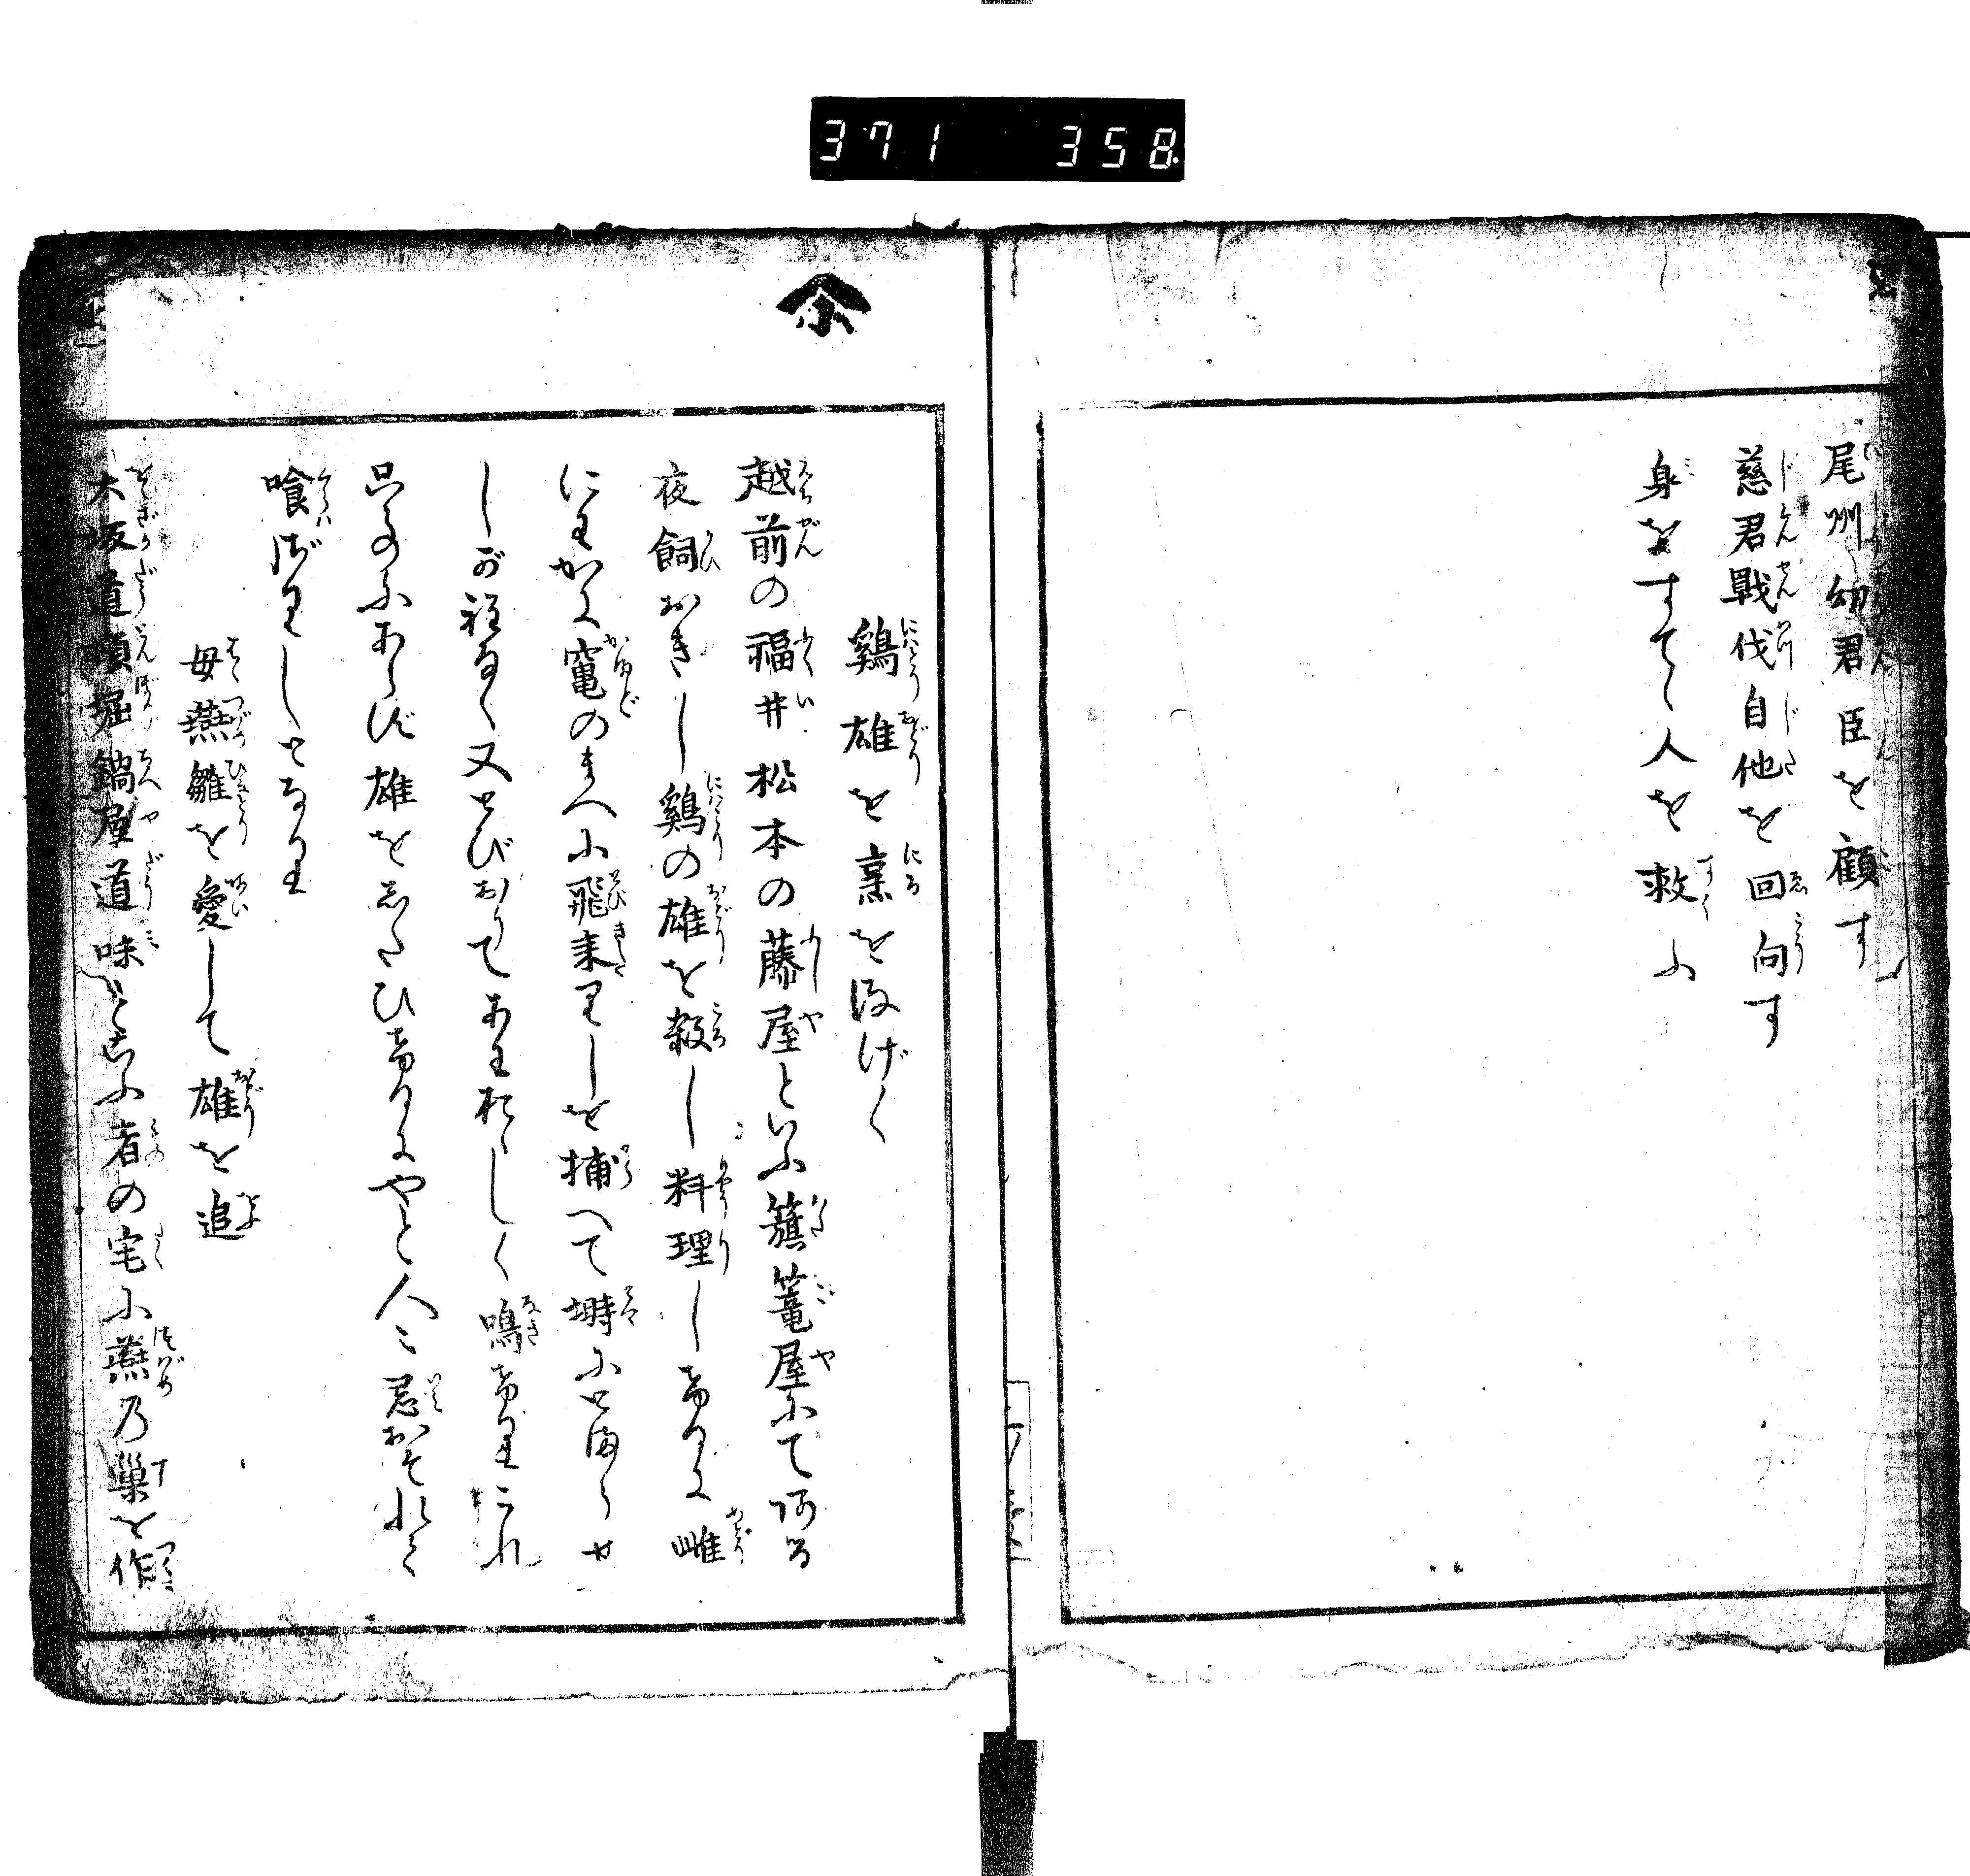 371 358
尾州幼君臣を顧す
慈君戰伐自他を回向す
身をすてゝ人を救ふ
鷄雄を烹をなげく
越前の福井松本の藤屋といふ籏篭屋にて或
夜飼おきし鷄の雄を殺し料理しけるに雌
にわかに竈のまへに飛来りしを捕へて塒にとまらせ
しが程なく又とびおりてあわれしく鳴けりこれ
只事にあらず雄をしたひけるにやと人々忌おそれて
喰ざりしとなり
母燕雛を愛して雄を追
大坂道頓堀鍋屋道味と云ふ者の宅に燕乃巣を作